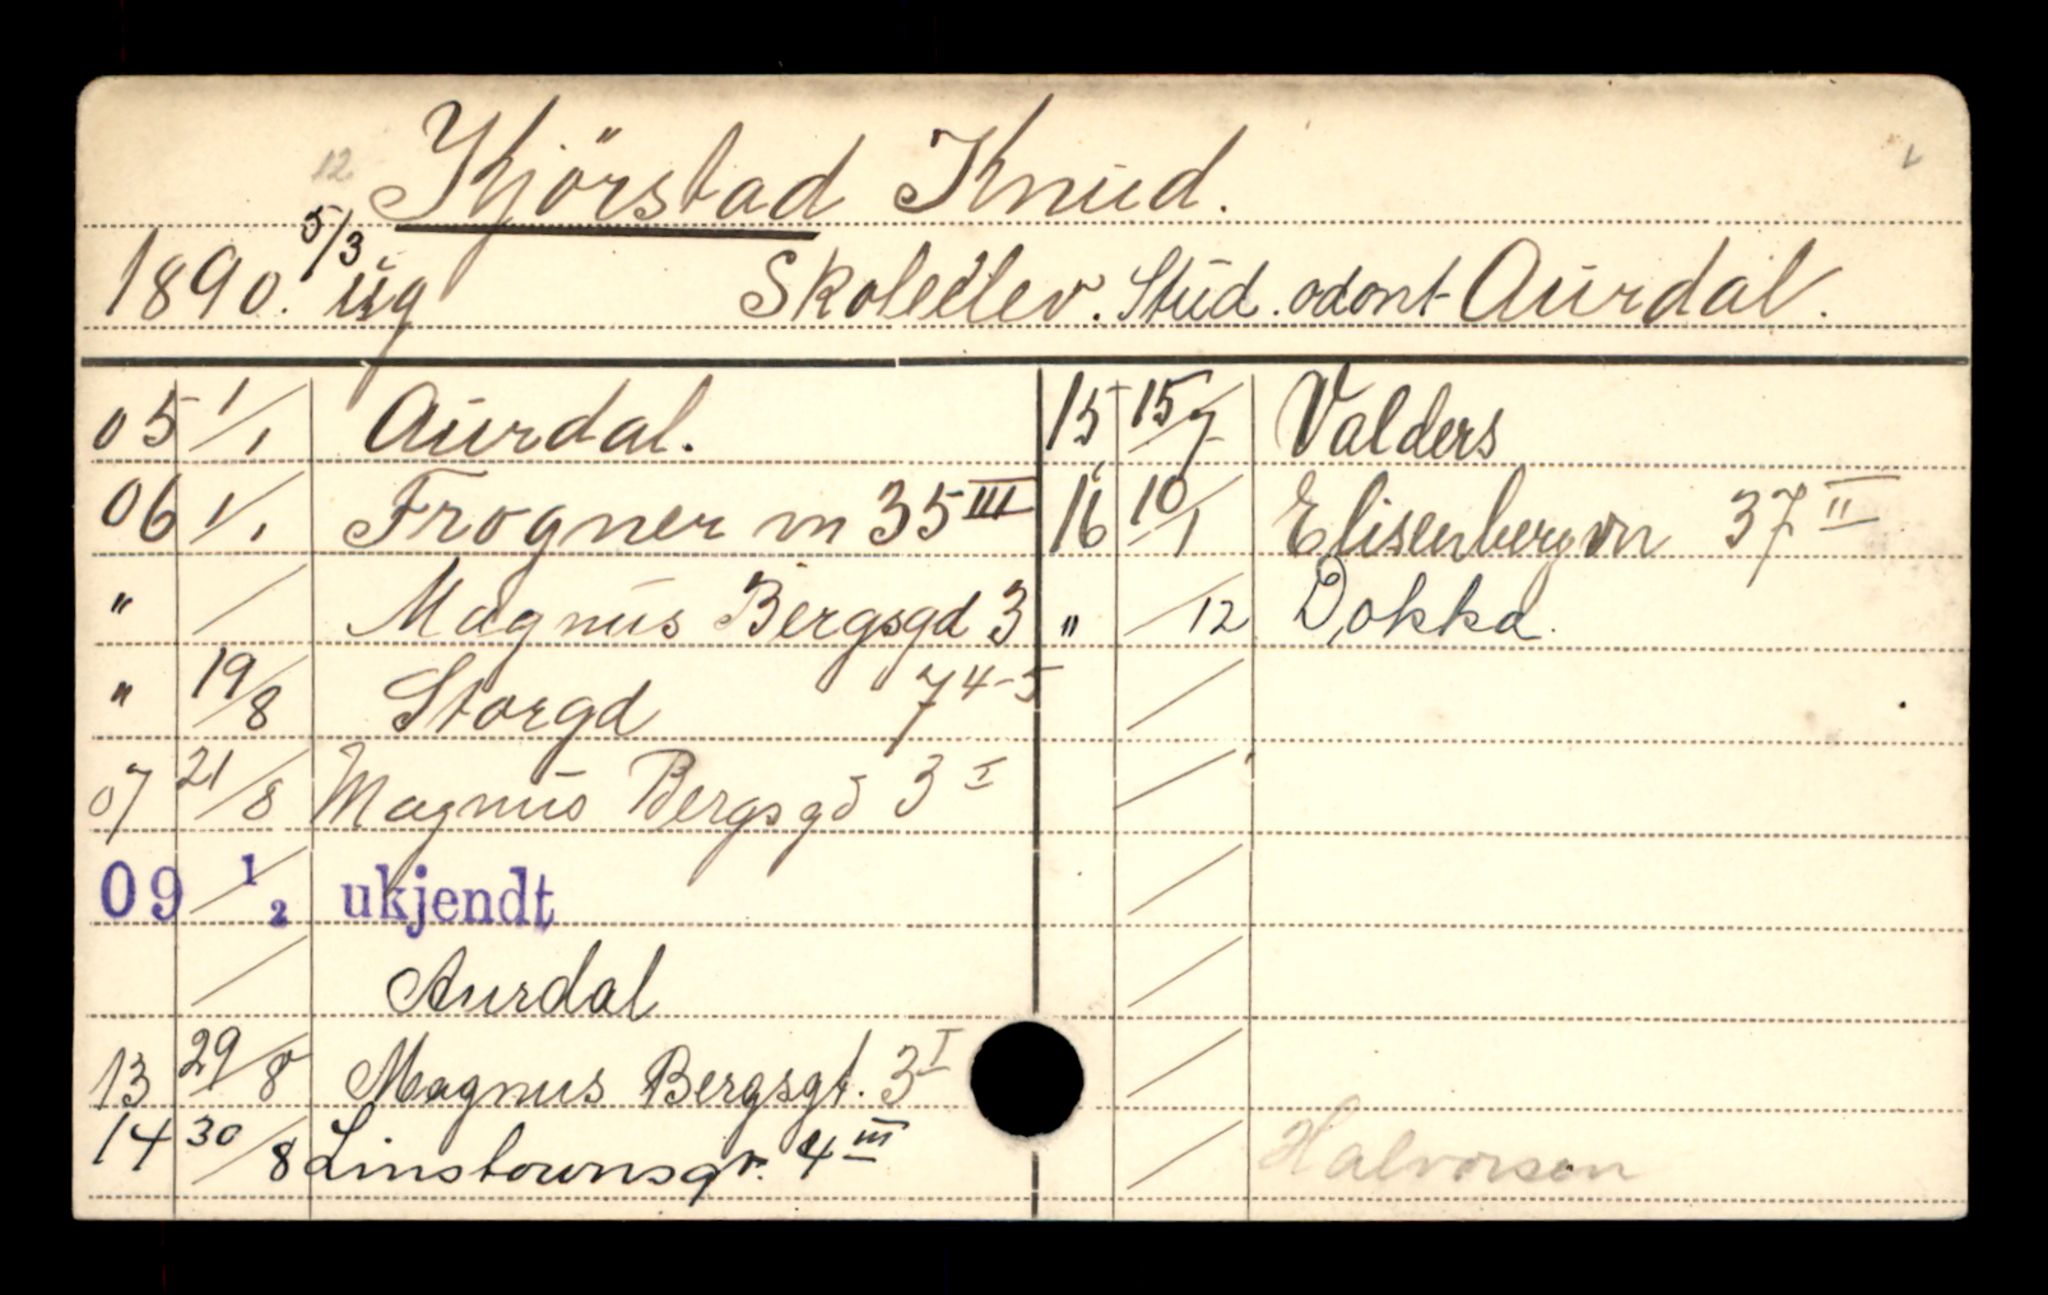 12
Kjörstad Knud.
1890. 5/3 ug Skoleelev. Stud. odont Aurdal.
05 1/1 Aurdal.
06 1/1 Frogner vn 35 III
" / Magnus Bergsgd 3
" 19/8 Storgd 74-5
07 21/8 Magnus Bergsgd 3 I
09 1/2 ukjendt
/ Aurdal
13 29/8 Magnus Bergsgt. 3 I
14 30/8 Linstownsgt. 4 III
15 15/7 Valders
16 10/1 Elisenberg vn 37 II
" /12 Dokka.
Halvorsen